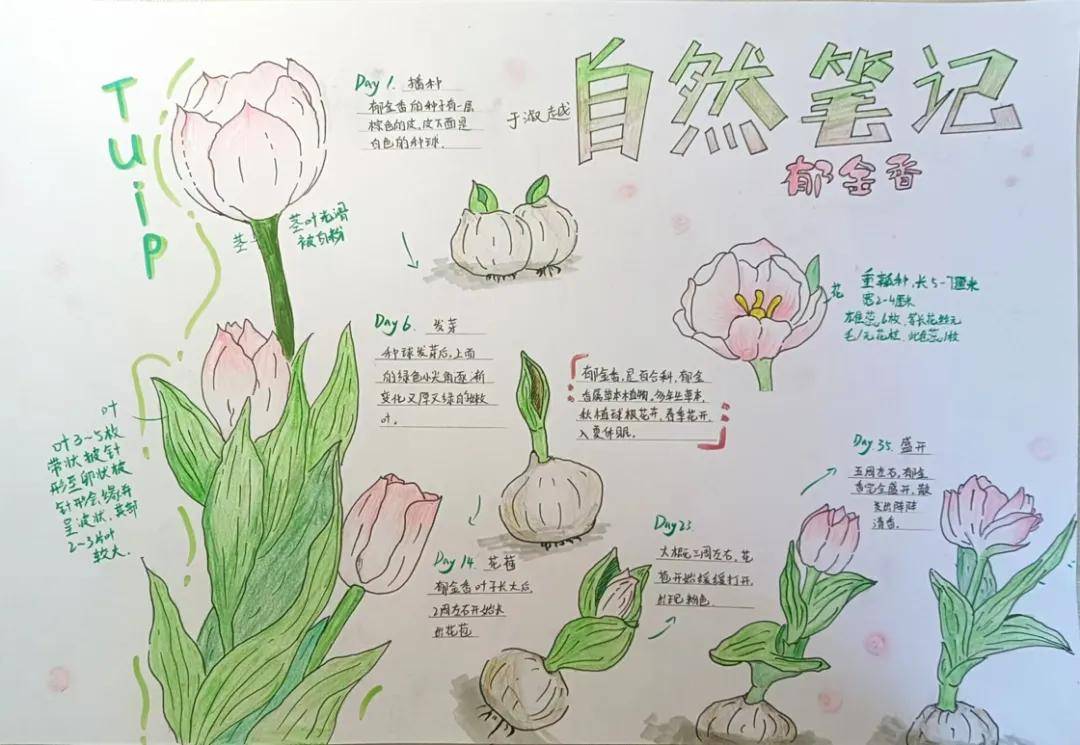 自然笔记
郁金香
于淑越
Tuip
Day 1. 播种
郁金香的种子有一层
棕色的皮,皮下面是
白色的种球.
茎
茎叶光滑
被白粉
花
重瓣种,长5-7厘米
宽2-4厘米
雄蕊6枚,等长花丝无
毛
Day 6. 发芽
种球发芽后,上面
的绿色小尖角逐渐
变化又厚又绿的嫩
叶.
郁金香,是百合科,郁金
香属草本植物,多年生草本,
秋植球根花卉,春季花开,
入夏休眠.
叶
叶3~5枚
带状披针
形至卵状披
针形全缘并
呈波状,基部
2~3片叶
较大.
Day 14. 花苞
郁金香叶子长大后,
2周左右开始长
出花苞
Day 23.
大概三周左右,花
苞开始缓缓打开,
出现粉色.
Day 35. 盛开
五周左右,郁金
香完全盛开,散
发出阵阵
清香.